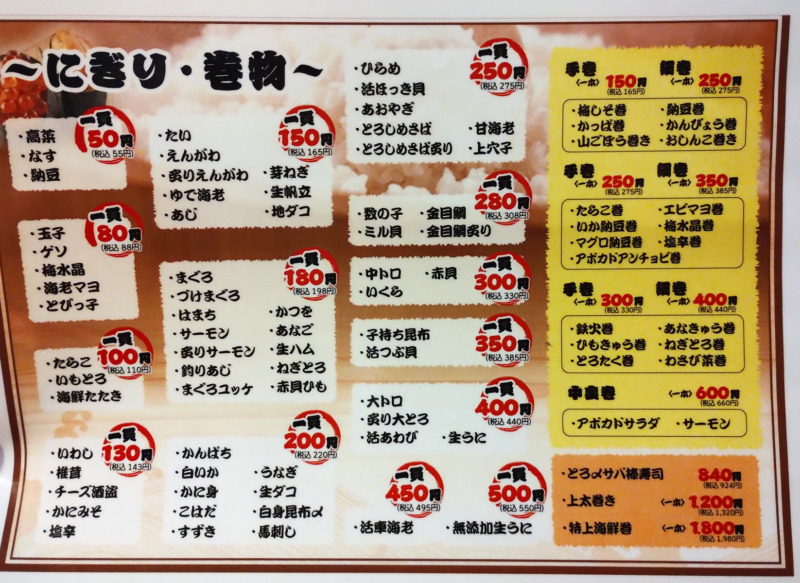 ～にぎり・巻物～
一貫
50円
(税込 55円)
・高菜
・なす
・納豆
一貫
80円
(税込 88円)
・玉子
・ゲソ
・梅水晶
・海老マヨ
・とびっ子
一貫
100円
(税込 110円)
・たらこ
・いもとろ
・海鮮たたき
一貫
130円
(税込 143円)
・いわし
・椎茸
・チーズ酒盗
・かにみそ
・塩辛
一貫
150円
(税込 165円)
・たい
・えんがわ
・炙りえんがわ ・芽ねぎ
・ゆで海老 ・生帆立
・あじ ・地ダコ
一貫
180円
(税込 198円)
・まぐろ
・づけまぐろ
・はまち ・かつを
・サーモン ・あなご
・炙りサーモン ・生ハム
・釣りあじ ・ねぎとろ
・まぐろユッケ ・赤貝ひも
一貫
200円
(税込 220円)
・かんぱち
・白いか ・うなぎ
・かに身 ・生ダコ
・こはだ ・白身昆布〆
・すずき ・馬刺し
一貫
250円
(税込 275円)
・ひらめ
・活ほっき貝
・あおやぎ
・とろしめさば ・甘海老
・とろしめさば炙り ・上穴子
一貫
280円
(税込 308円)
・数の子 ・金目鯛
・ミル貝 ・金目鯛炙り
一貫
300円
(税込 330円)
・中トロ ・赤貝
・いくら
一貫
350円
(税込 385円)
・子持ち昆布
・活つぶ貝
一貫
400円
(税込 440円)
・大トロ
・炙り大とろ
・活あわび ・生うに
一貫
450円
(税込 495円)
・活車海老
一貫
500円
(税込 550円)
・無添加生うに
手巻 〈一本〉 150円 (税込 165円) 細巻 〈一本〉 250円 (税込 275円)
・梅しそ巻 ・納豆巻
・かっぱ巻 ・かんぴょう巻
・山ごぼう巻き ・おしんこ巻き
手巻 〈一本〉 250円 (税込 275円) 細巻 〈一本〉 350円 (税込 385円)
・たらこ巻 ・エビマヨ巻
・いか納豆巻 ・梅水晶巻
・マグロ納豆巻 ・塩辛巻
・アボカドアンチョビ巻
手巻 〈一本〉 300円 (税込 330円) 細巻 〈一本〉 400円 (税込 440円)
・鉄火巻 ・あなきゅう巻
・ひもきゅう巻 ・ねぎとろ巻
・とろたく巻 ・わさび菜巻
中裏巻 〈一本〉 600円 (税込 660円)
・アボカドサラダ ・サーモン
・とろ〆サバ棒寿司 840円 (税込 924円)
・上太巻き 〈一本〉 1,200円 (税込 1,320円)
・特上海鮮巻 〈一本〉 1,800円 (税込 1,980円)